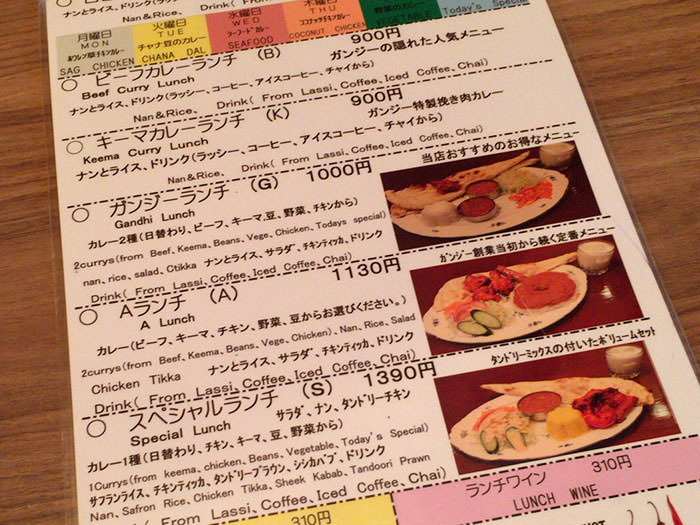 ナンとライス、ドリンク(ラッシー、コーヒー、
Nan＆Rice、 Drink( From Lassi,
月曜日 火曜日 水曜日 木曜日
MON TUE WED THU
ホウレン草チキンカレー チャナ豆のカレー シーフードカレー ココナッツチキンカレー
SAG CHICKEN CHANA DAL SEAFOOD COCONUT CHICKEN VEGETABLE Today's Special
○ ビーフカレーランチ (B) 900円
Beef Curry Lunch ガンジーの隠れた人気メニュー
ナンとライス、ドリンク(ラッシー、コーヒー、アイスコーヒー、チャイから)
Nan＆Rice、 Drink( From Lassi,Coffee,Iced Coffee,Chai)
○ キーマカレーランチ (K) 900円
Keema Curry Lunch ガンジー特製挽き肉カレー
ナンとライス、ドリンク(ラッシー、コーヒー、アイスコーヒー、チャイから)
Nan＆Rice、 Drink( From Lassi,Coffee,Iced Coffee,Chai)
○ ガンジーランチ (G) 1000円
当店おすすめのお得なメニュー
Gandhi Lunch
カレー2種(日替わり、ビーフ、キーマ、豆、野菜、チキンから)
2currys(from Beef, Keema, Beans, Vege, Chicken, Todays special)
nan, rice, salad, Ctikka ナンとライス、サラダ、チキンティッカ、ドリンク
Drink( From Lassi,Coffee,Iced Coffee,Chai)
○ Aランチ (A) 1130円
ガンジー創業当初から続く定番メニュー
A Lunch
カレー(ビーフ、キーマ、チキン、野菜、豆からお選びください。)
2currys(from Beef, Keema, Beans, Vege, Chicken), Nan, Rice, Salad
Chicken Tikka ナンとライス、サラダ、チキンティッカ、ドリンク
Drink( From Lassi,Coffee,Iced Coffee,Chai)
○ スペシャルランチ (S) 1390円
タンドリーミックスの付いたボリュームセット
Special Lunch サラダ、ナン、タンドリーチキン
カレー1種(日替わり、チキン、キーマ、豆、野菜から)
1Currys(from keema, chicken, Beans, Vegetable, Today's Special)
サフランライス、チキンティッカ、タンドリープラウン、シシカバブ、ドリンク
Nan, Safron Rice, Chicken Tikka, Sheek Kabab, Tandoori Prawn
Drink( From Lassi,Coffee,Iced Coffee,Chai)
ランチワイン 310円
LUNCH WINE
310円